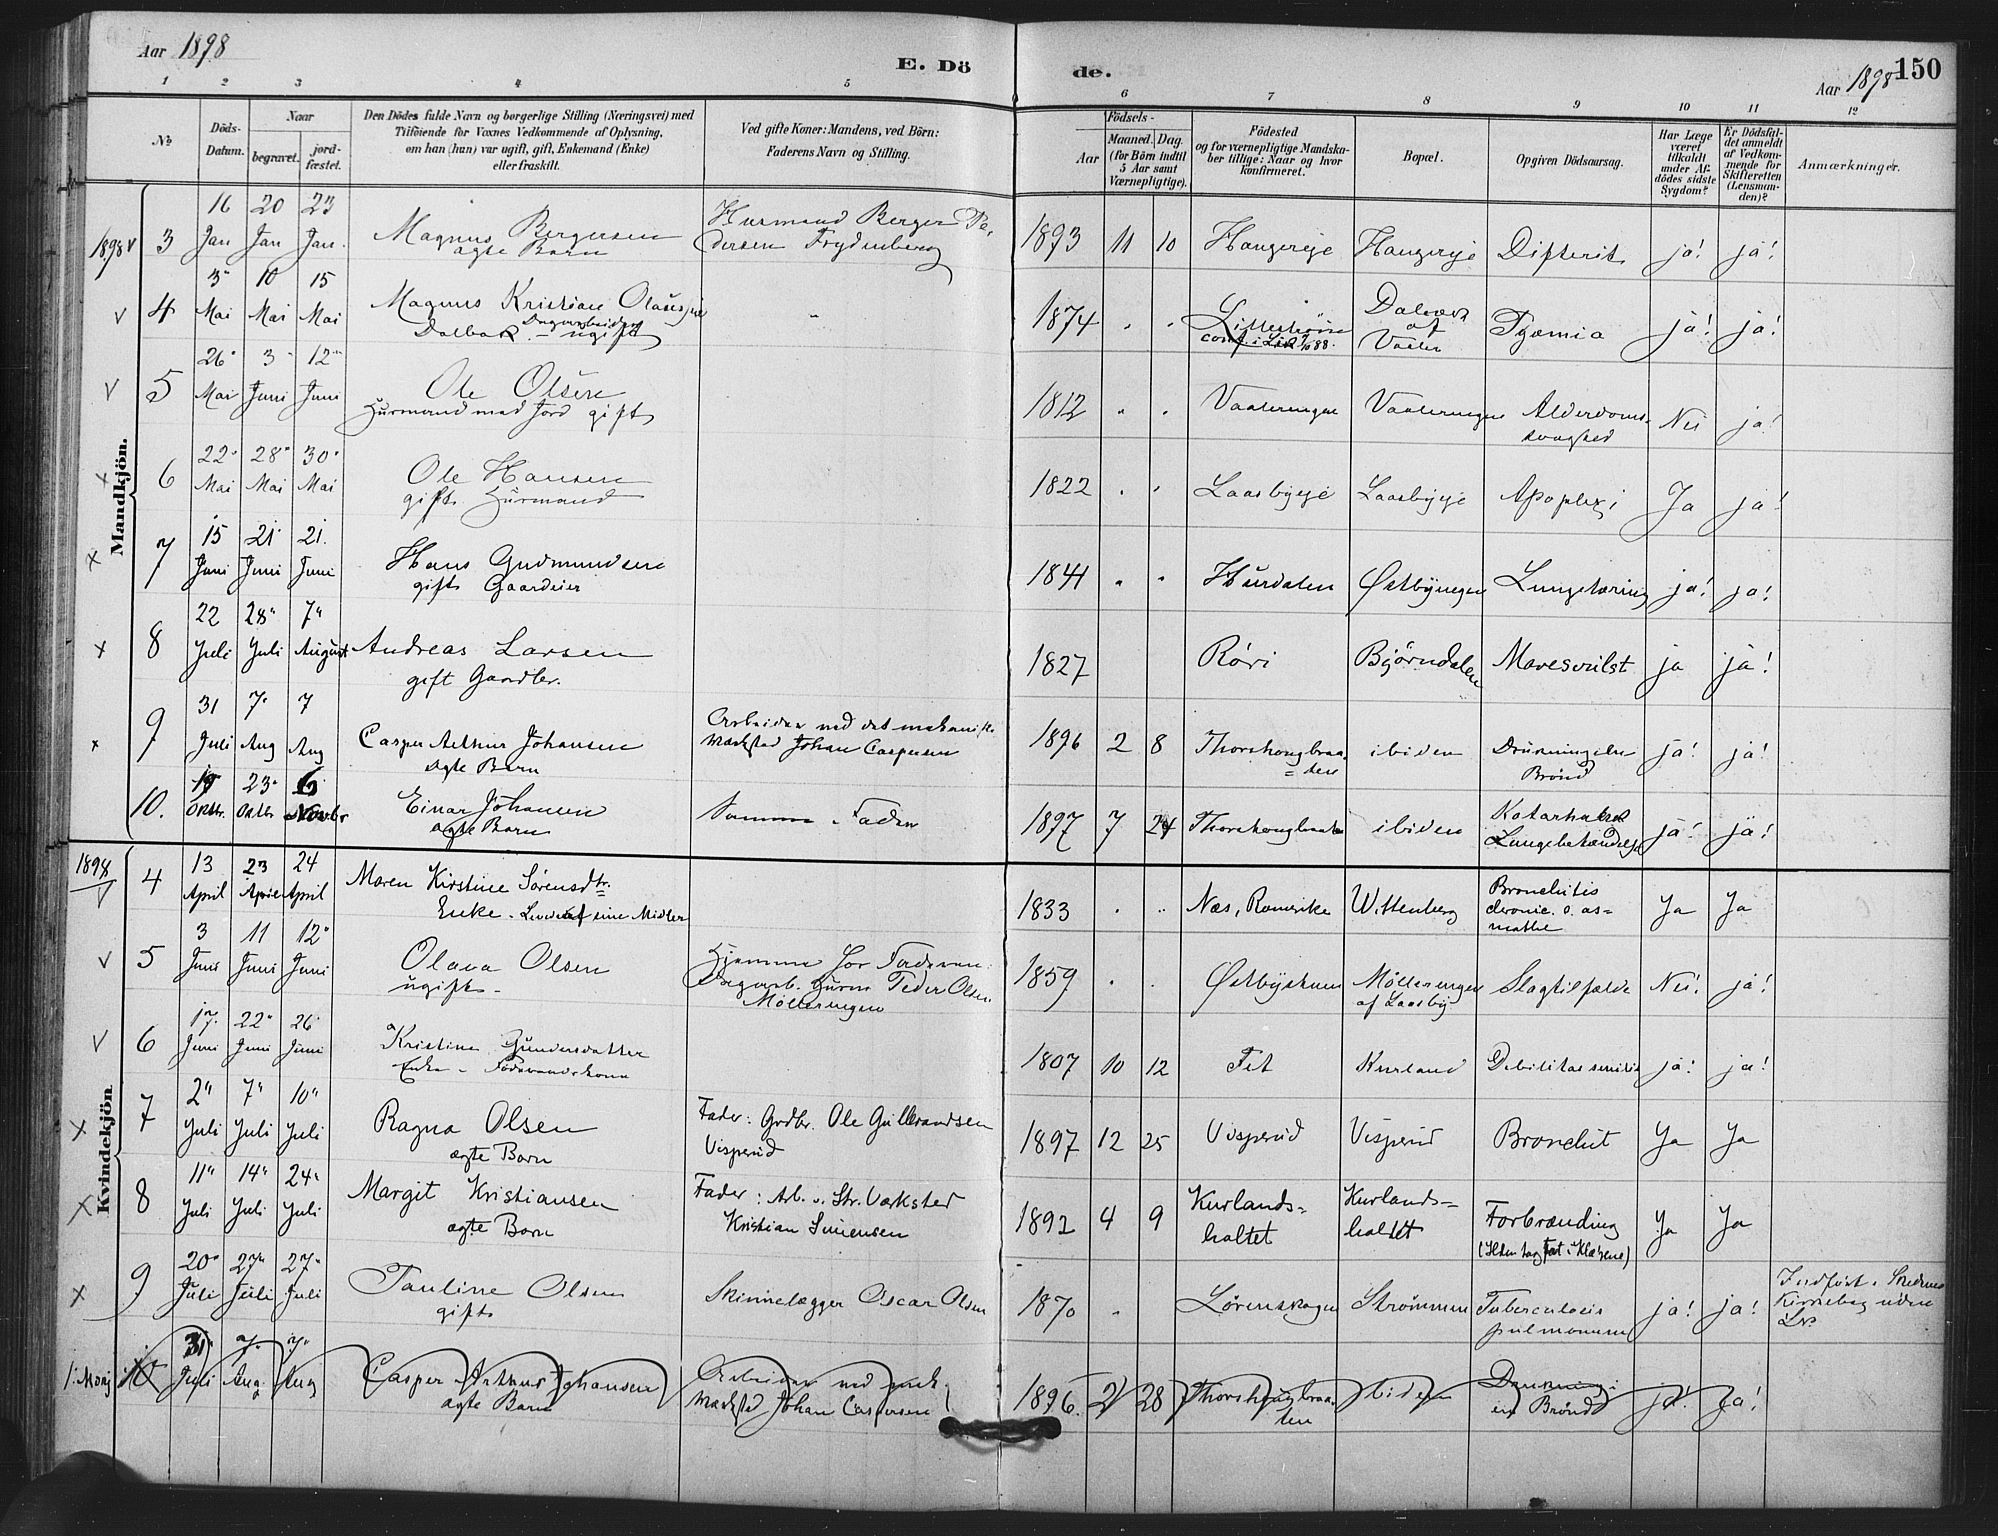 Aar 1898
E. Dö
de.
Aar 1898
150
1 2 3 4 5 6 7 8 9 10 11 12
No
Döds-Datum.
Naar
begravet.
jord-fæstet.
Den Dödes fulde Navn og borgerlige Stilling (Næringsvei) med
Tilföiende for Voxnes Vedkommende af Oplysning,
om han (hun) var ugift, gift, Enkemand (Enke)
eller fraskilt.
Ved gifte Koner: Mandens, ved Börn:
Faderens Navn og Stilling.
Födsels-
Aar
Maaned. Dag.
(for Börn indtil
5 Aar samt
Værnepligtige).
Födested
og for værnepligtige Mandska-
ber tillige: Naar og hvor
konfirmeret.
Bopæl.
Opgiven Dödsaarsag.
Har Læge
været
tilkaldt
under Af-
dödes sidste
Sygdom?
Er Dödsfal-
det anmeldt
af Vedkom-
mende for
Skifteretten
(Lensman-
den)?
Anmærkninger.
Mandkjön.
1898 v 3
16 Jan 20 Jan 23 Jan.
Magnus Bergersen
ægte Barn
Husmand Berger Pe-
dersen Frydenberg
1893 11 10 Haugereje Haugereje Difterit ja! ja!
v 4
3 Mai 10 Mai 15 Mai
Magnus Kristian Olaussen
Dalbak Dagarbeider - ugift
1874 Lillestrøm
Dalbak
af
Vaaler
Pyæmia ja! ja!
v 5
26 Mai 3 Juni 12 Juni
Ole Olsen
Husmand med Jord gift
1812 Vaaleringen Vaaleringen Alderdoms-
svaghed
Nei ja!
x 6
22 Mai 28 Mai 30 Mai
Ole Hansen
gift Husmand
1822 Laasbyeje Laasbyeje Apoplexi Ja ja!
x 7
15 Juni 21 Juni 21. Juni
Hans Gudmundsen
gift Gaardeier
1841 Hurdalen Østbyengen Lungetæring ja! ja!
x 8
22 Juli 28 Juli 7 August
Andreas Larsen
gift Gaardbr.
1827 Röri Björndalen Mavesvulst ja ja!
x 9
31 Juli 7 Aug 7 Aug
Casper Arthur Johansen
ægte Barn
Arbeider ved det mekaniske
Værksted Johan Caspersen
1896 2 8 Thorshougbraa-
=ten
ibidem
Drukning i en
Brönd
ja! ja!
10.
Oktbr. 23 Oktbr 6 Novbr
Einar Johansen
ægte Barn
Samme Fader
1897 7 24 Thorshougbraaten ibidem Katarhalsk
Lungebetændelse
ja! ja!
Kvindekjön
1898 v 4
13 April 23 April 24 April
Maren Kirstine Sörensdtr.
Enke. Lever af sine Midler
1833 Næs, Romerike Wittenberg Bronchitis
chronic. o. as=
mathe
Ja Ja
v 5
3 Juni 11 Juni 12 Juni
Olava Olsen
ugift -
Hjemme hos Faderen:
Dagarb. Husm Peder Olsen
Mölleringen
1859 Østbyskoven Mölleringen
af Laasby
Slagtilfælde Nei! ja!
v 6
17. Juni 22 Juni 26 Juni
Kristine Gundersdatter
Enke - Föderaadskone
1807 10 12 Fet Kurland Debilitas senilis ja! ja!
x 7
2 Juli 7 Juli 10 Juli
Ragna Olsen
ægte Barn
Fader: Grdbr. Ole Gulbrandsen
Visperud
1897 12 25 Visperud Visperud Bronchit Ja Ja
x 8
11 Juli 14 Juli 24 Juli
Margit Kristiansen
ægte Barn
Fader: Arb. v. Str. Værksted
Kristian Simensen
1892 4 9 Kurlands=
haltet
Kurlands=
haltet
Forbrænding
(Ilden tog fat i Klærne)
Ja Ja
x 9
20 Juli 27 Juli 27 Juli
Pauline Olsen
gift
Skinnelægger Oscar Olsen
1870 Lörenskogen Strömmen Tuberculosis
pulmonum
ja! ja!
Indfört i Skedsmo
Kirkebog uden
Nr.
10
31 Juli 7 Aug 7 Aug
Casper Arthur Johansen
ægte Barn
Arbeider ved mek.
Værksted Johan Caspersen
1896. 2 28 Thorshougbraa-
ten
ibidem
Drukning i
en Brönd
ja! Ja!